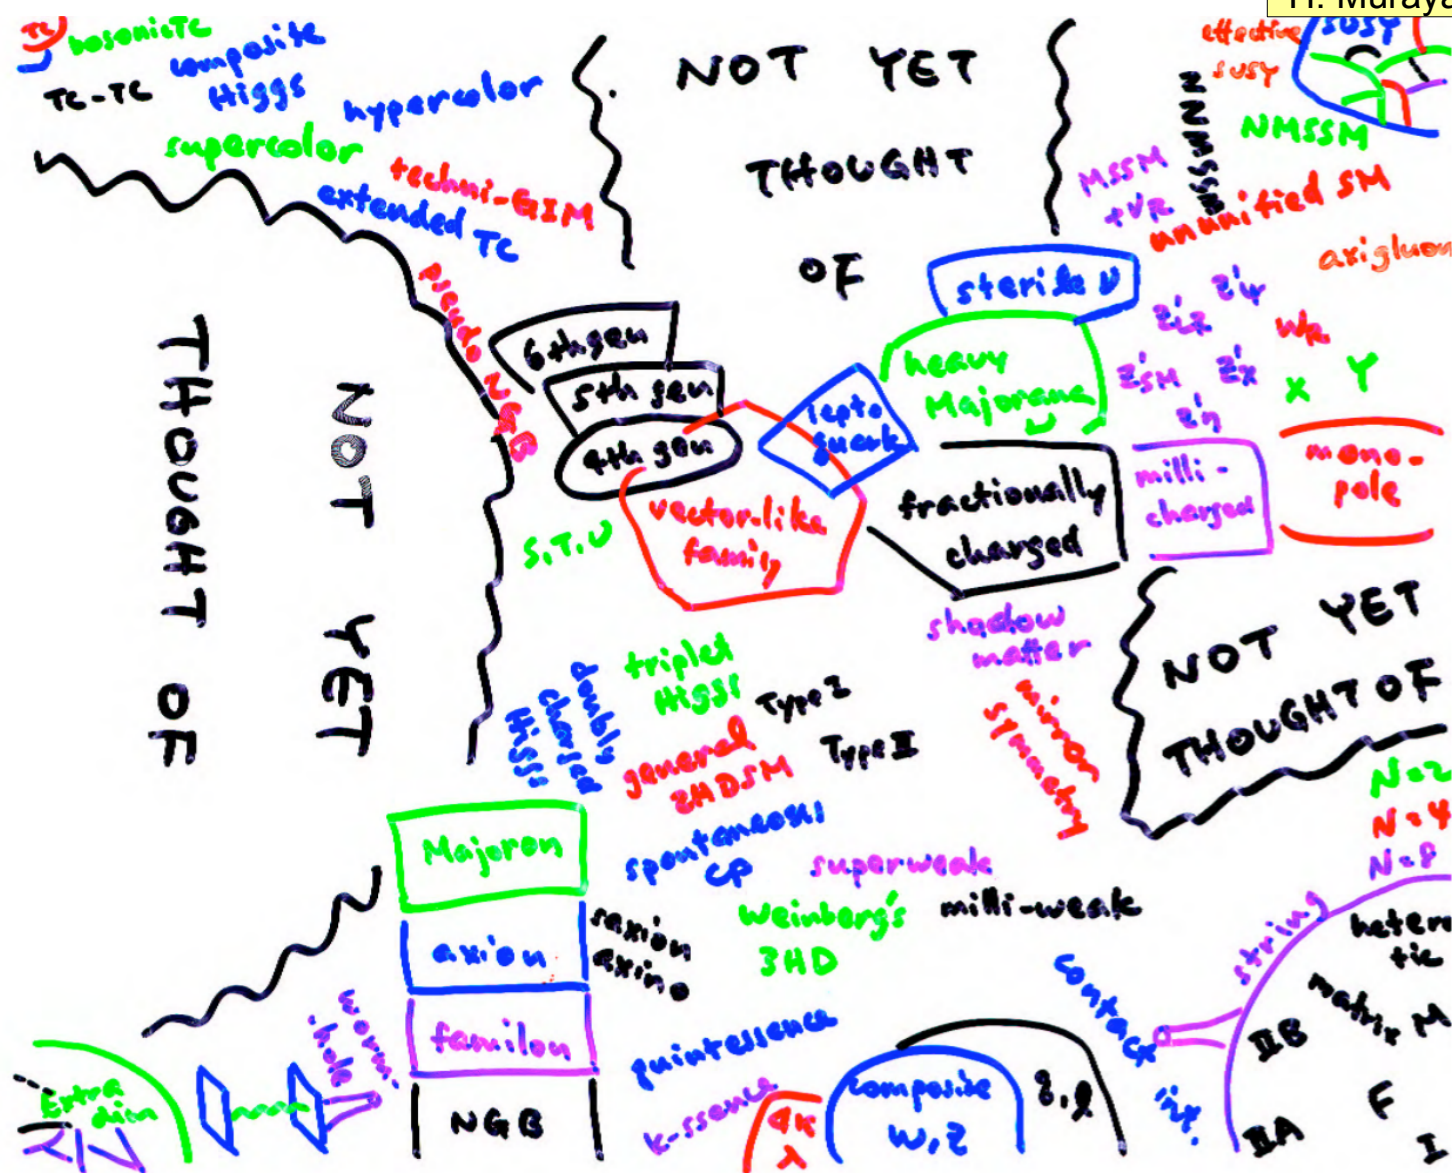 H. Muraya
TC
bosonicTC
TC-TC
composite
Higgs
hypercolor
supercolor
techni-GIM
extended TC
pseudo NGB
NOT YET
THOUGHT
OF
effective
SUSY
SUSY
NNMSSM
NMSSM
MSSM
+νR
ununified SM
axigluon
sterile ν
heavy
Majorana
ν
Z'LR
Z'ψ
WR
Z'SM
Z'χ
Z'η
X
Y
6th gen
5th gen
4th gen
lepto
quark
vector-like
family
S,T,U
fractionally
charged
milli-
charged
mono-
pole
NOT YET
THOUGHT OF
shadow
matter
mirror
symmetry
NOT YET
THOUGHT OF
triplet
Higgs
doubly
charged
Higgs
general
2HDSM
Type I
Type II
spontaneous
CP
superweak
Weinberg's
3HD
milli-weak
Majoron
axion
saxion
axino
familon
NGB
quintessence
k-ssence
worm-
hole
Extra
dim
composite
W,Z
q,l
contact
int.
N=2
N=4
N=8
string
hetero
tic
matrix M
IIB
F
IIA
I